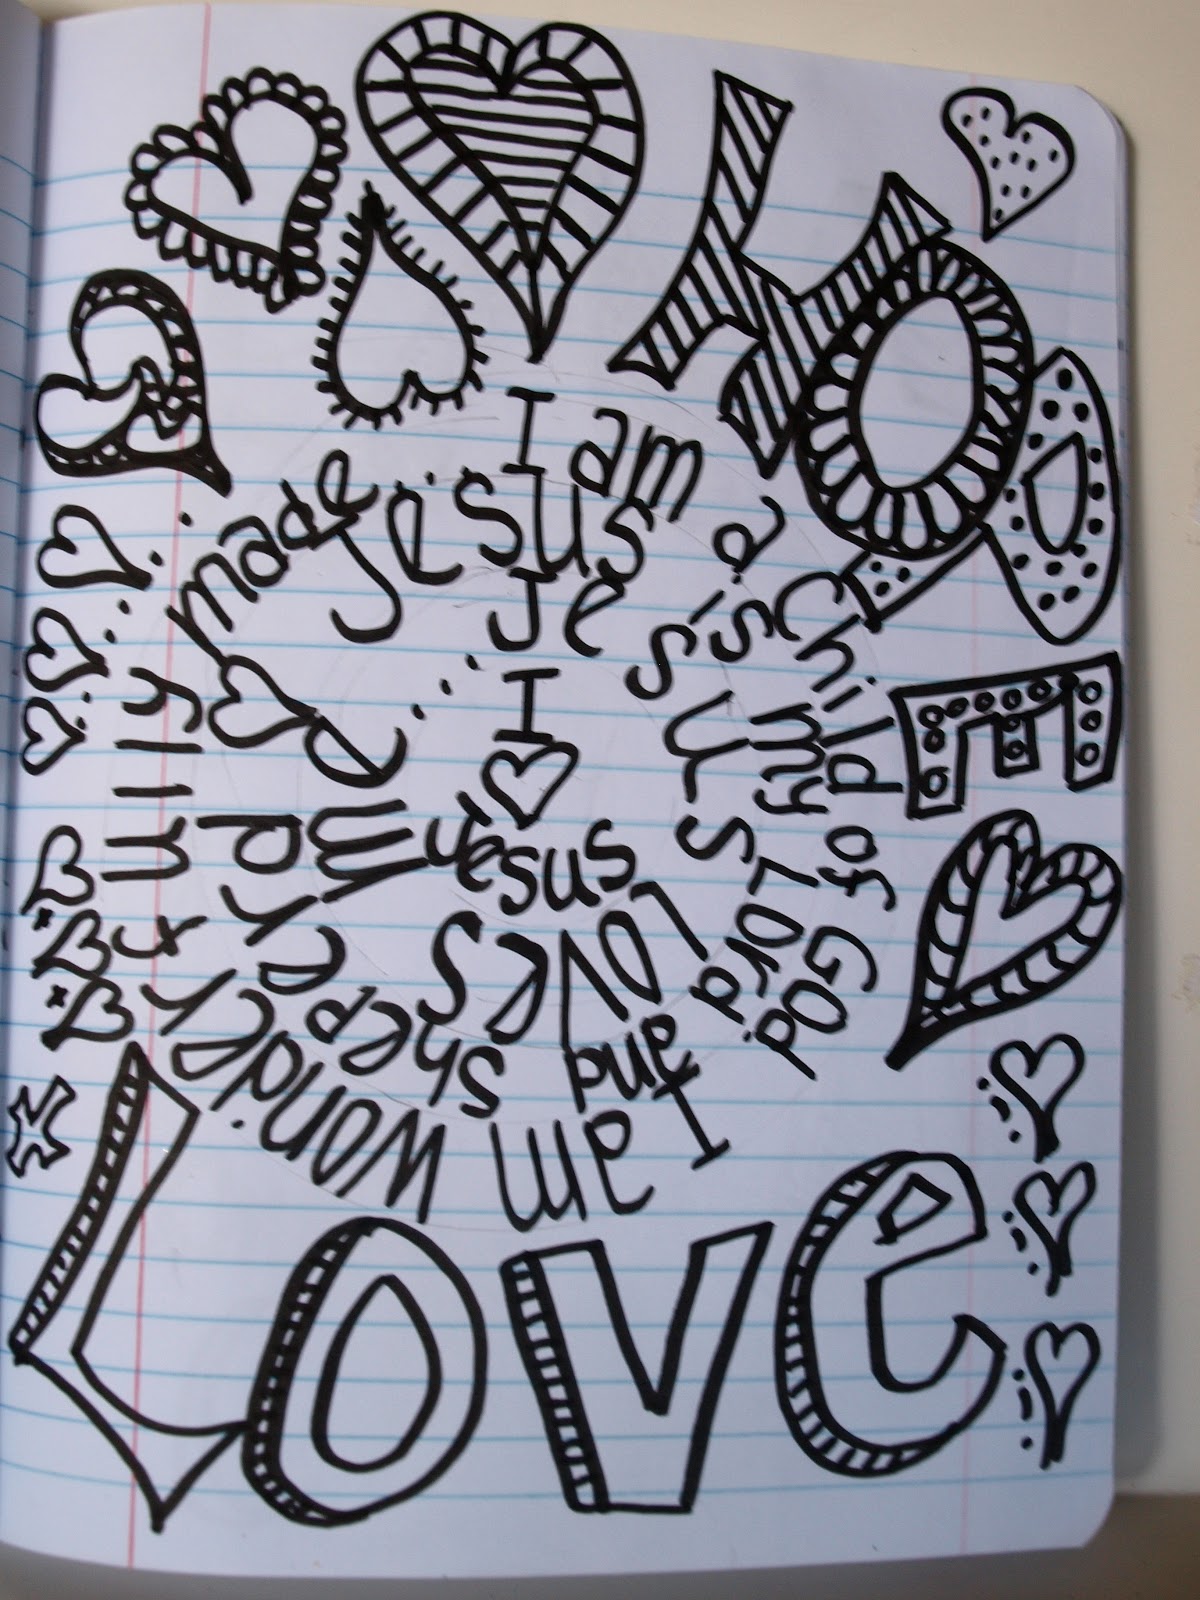 HOPE
I am a Child of God
I am wonderfully made
Jesus is my Lord
and sheperd
Jesus Loves me
I ♡ Jesus
LOVe